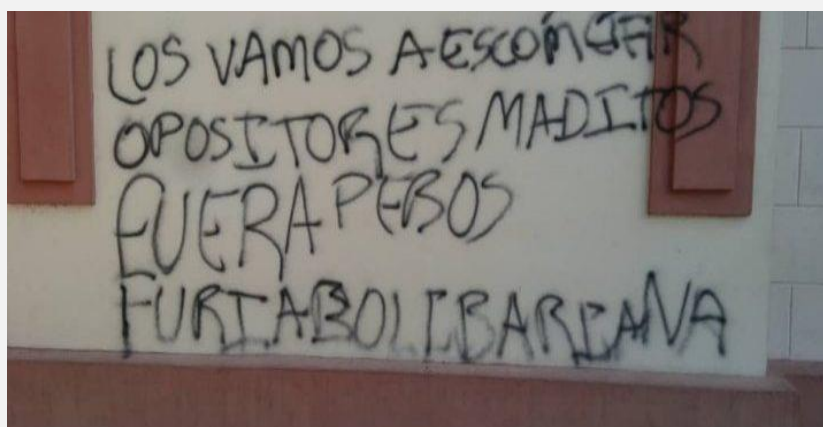 LOS VAMOS A ESCOÑETAR
OPOSITORES MADITOS
FUERA PEROS
FURIA BOLIBARIANA